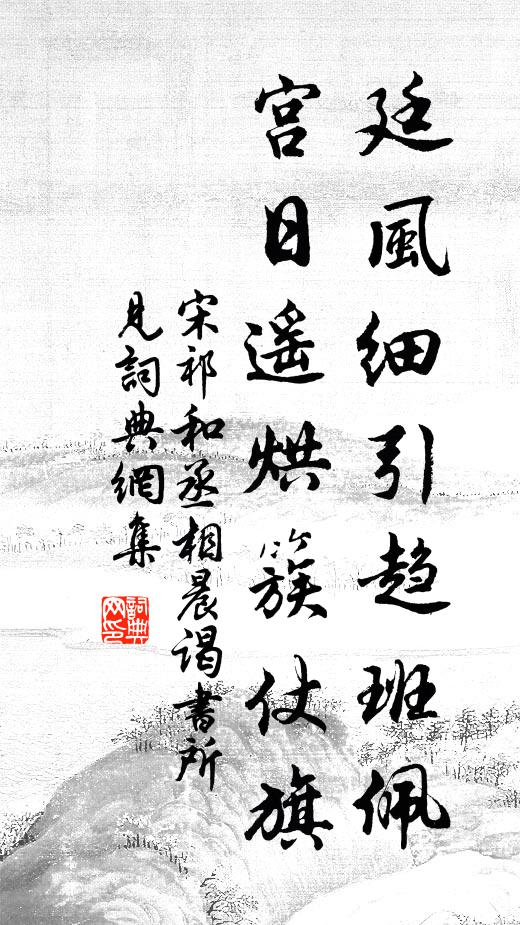 廷風細引趨班佩
宮日遥烘簇仗旗
宋祁和丞相晨谒書所
見詞典網集
詞典
网印